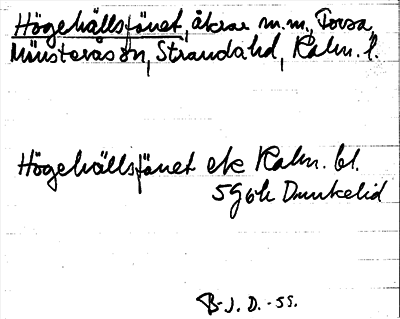 Högehällsfänet, åkrar m.m., Torsa,
Mönsterås sn, Stranda hd, Kalm. l.
Högehällsfänet ek Kalm. bl.
5 G 6 h Drunkelid
B-J. D. -55.